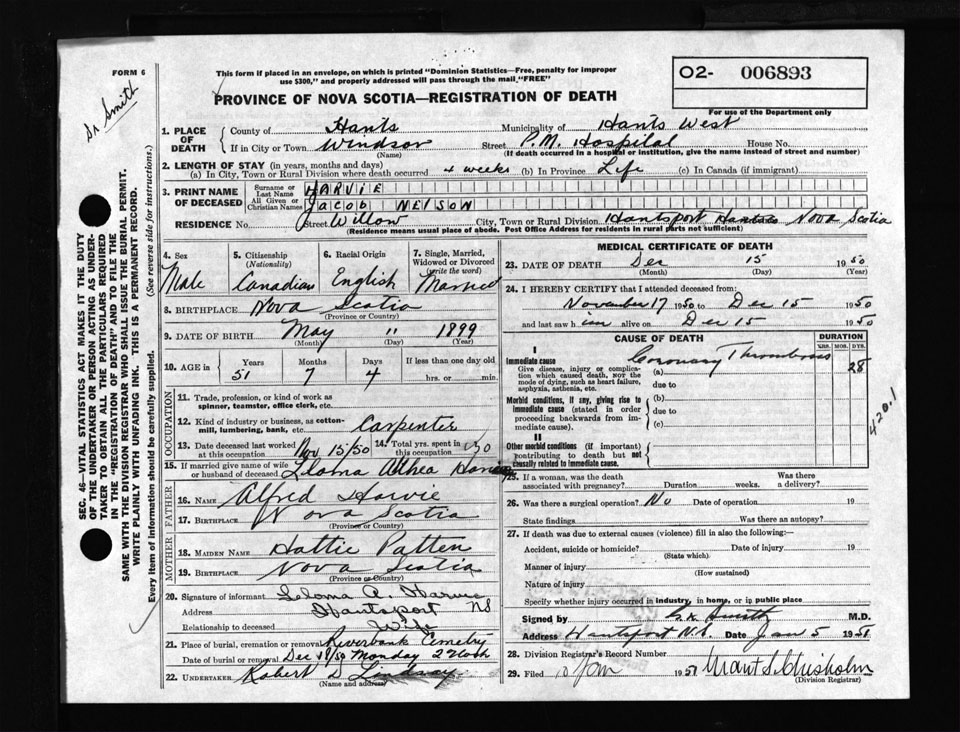 FORM 6
This form if placed in an envelope, on which is printed "Dominion Statistics—Free, penalty for improper
use $300," and properly addressed will pass through the mail "FREE"
O2- 006893
For use of the Department only
PROVINCE OF NOVA SCOTIA—REGISTRATION OF DEATH
Dr Smith
1. PLACE OF DEATH
County of Hants Municipality of Hants West
If in City or Town Windsor Street P.M. Hospital House No.
(Name) (If death occurred in a hospital or institution, give the name instead of street and number)
2. LENGTH OF STAY (in years, months and days)
(a) In City, Town or Rural Division where death occurred 4 weeks (b) In Province Life (c) In Canada (if immigrant)
3. PRINT NAME OF DECEASED
Surname or Last Name HARVIE
All Given or Christian Names JACOB NELSON
RESIDENCE No. Street Willow City, Town or Rural Division Hantsport Hants Nova Scotia
(Residence means usual place of abode. Post Office Address for residents in rural parts not sufficient)
4. Sex Male
5. Citizenship (Nationality) Canadian
6. Racial Origin English
7. Single, Married, Widowed or Divorced (write the word) Married
8. BIRTHPLACE Nova Scotia
(Province or Country)
9. DATE OF BIRTH May 11 1899
(Month) (Day) (Year)
10. AGE in Years Months Days If less than one day old
51 7 4 hrs. or min.
OCCUPATION
11. Trade, profession, or kind of work as
spinner, teamster, office clerk, etc.
12. Kind of industry or business, as cotton-
mill, lumbering, bank, etc. Carpenter
13. Date deceased last worked at this occupation Nov 15/50 14. Total yrs. spent in this occupation 30
15. If married give name of wife
or husband of deceased Leloma Althea Harvie
FATHER
16. NAME Alfred Harvie
17. BIRTHPLACE Nova Scotia
(Province or Country)
MOTHER
18. MAIDEN NAME Hattie Patten
19. BIRTHPLACE Nova Scotia
(Province or Country)
20. Signature of informant Leloma A. Harvie
Address Hantsport NS
Relationship to deceased Wife
21. Place of burial, cremation or removal Riverbank Cemetry
Date of burial or removal Dec 18/50 Monday 2 oclock
22. UNDERTAKER Robert D Lindsay
(Name and address)
MEDICAL CERTIFICATE OF DEATH
23. DATE OF DEATH Dec 15 1950
(Month) (Day) (Year)
24. I HEREBY CERTIFY that I attended deceased from:
November 17 1950 to Dec 15 1950
and last saw him alive on Dec 15 1950
CAUSE OF DEATH DURATION
YRS. MOS. DYS.
I
Immediate cause (a) Coronary Thrombosis 28
Give disease, injury or complica-
tion which caused death, not the
mode of dying, such as heart failure,
asphyxia, asthenia, etc.
due to
Morbid conditions, if any, giving rise to
immediate cause (stated in order
proceeding backwards from im-
mediate cause).
(b)
due to
(c)
II
Other morbid conditions (if important)
contributing to death but not
causally related to immediate cause.
420.1
25. If a woman, was the death
associated with pregnancy? Duration weeks. Was there
a delivery?
26. Was there a surgical operation? No Date of operation 19
State findings Was there an autopsy?
27. If death was due to external causes (violence) fill in also the following:
Accident, suicide or homicide? Date of injury 19
(State which)
Manner of injury
(How sustained)
Nature of injury
Specify whether injury occurred in industry, in home, or in public place
Signed by Smith M.D.
Address Hantsport N.S. Date Jan 5 1951
28. Division Registrar's Record Number
29. Filed 10 Jan 1951 Grant S. Chisholm
(Division Registrar)
SEC. 46—VITAL STATISTICS ACT MAKES IT THE DUTY
OF THE UNDERTAKER OR PERSON ACTING AS UNDER-
TAKER TO OBTAIN ALL THE PARTICULARS REQUIRED
IN THE "REGISTRATION OF DEATH" AND TO FILE THE
SAME WITH THE DIVISION REGISTRAR WHO SHALL ISSUE THE BURIAL PERMIT.
WRITE PLAINLY WITH UNFADING INK. THIS IS A PERMANENT RECORD.
Every item of information should be carefully supplied. (See reverse side for instructions.)